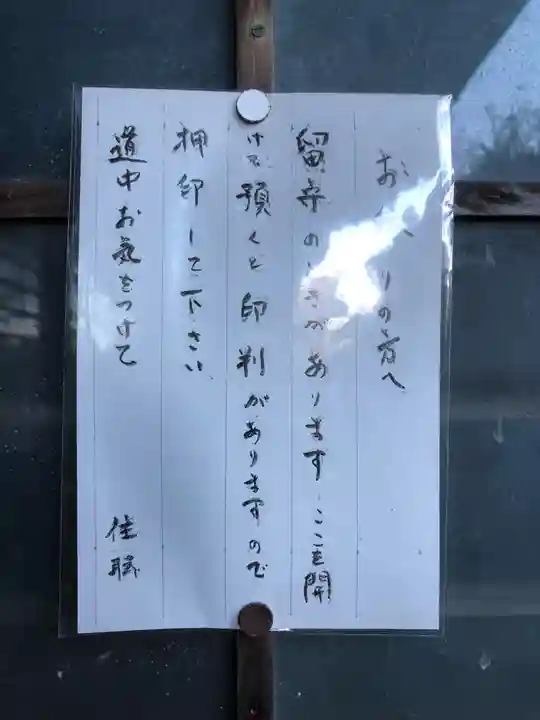 お りの方へ
留守のときがあります ここを開
けて頂くと印判がありますので
押印して下さい、
道中お気をつけて
住職